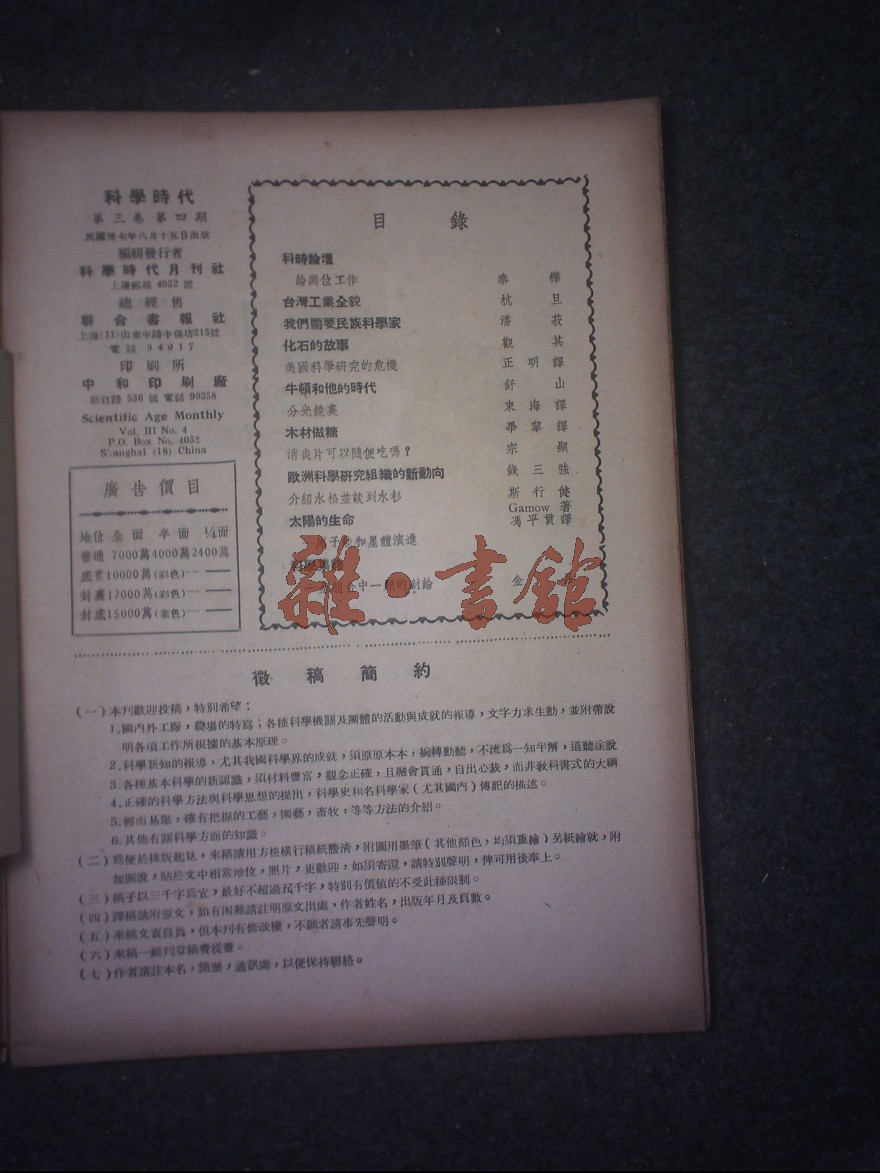 科學時代
第三卷第四期
民國卅七年八月十五日出版
編輯發行者
科學時代月刊社
上海郵箱 4052 號
總經售
聯合書報社
上海(11)山東中路中保坊215號
電話 94017
印刷所
中和印刷廠
浙江路 536 號 電話 90358
Scientific Age Monthly
Vol. III No. 4
P.O. Box No. 4052
Shanghai (18) China
廣告價目
地位 全面 半面 ¼面
普通 7000萬 4000萬 2400萬
底裏 10000萬(彩色)
封裏 12000萬(彩色)
封底 15000萬(套色)
目錄
科時論壇
論崗位工作 泰樺
台灣工業全貌 杭旦
我們需要民族科學家 潘菽
化石的故事 觀其
美國科學研究的危機 正明譯
牛頓和他的時代 舒山
分光鏡裏 東海譯
木材做糖 畢黎譯
消炎片可以隨便吃嗎? 宗顯
歐洲科學研究組織的新動向 錢三強
介紹水松並談到水杉 斯行健
太陽的生命 Gamow 著 馮平貫譯
原子能和星體演進
中一題的討論 金
雜·書館
徵稿簡約
(一)本刊歡迎投稿,特別希望:
1.國內外工廠,農場的特寫;各種科學機關及團體的活動與成就的報導,文字力求生動,並附帶說
明各項工作所根據的基本原理。
2.科學新知的報導,尤其我國科學界的成就,須原原本本,婉轉動聽,不流爲一知半解,道聽途說
3.各種基本科學的新認識,須材料豐富,觀念正確,且融會貫通,自出心裁,而非敎科書式的大綱
4.正確的科學方法與科學思想的提出,科學史和名科學家(尤其國內)傳記的描述。
5.輕而易舉,確有把握的工藝,園藝,畜牧,等等方法的介紹。
6.其他有關科學方面的知識。
(二)爲便於排版起見,來稿請用方格橫行稿紙謄清,附圖用墨筆(其他顏色,均須重繪)另紙繪就,附
加圖說,貼於文中相當地位,照片,更歡迎,如須寄還,請特別聲明,俾可用後奉上。
(三)稿子以三千字爲宜,最好不超過五千字,特別有價值的不受此種限制。
(四)譯稿請附原文,如有困難請註明原文出處,作者姓名,出版年月及頁數。
(五)來稿文責自負,但本刊有修改權,不願者請事先聲明。
(六)來稿一經刋登稿費從豐。
(七)作者請註本名,簡歷,通訊處,以便保持聯絡。